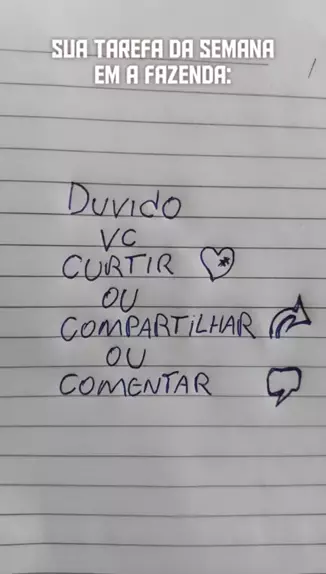 SUA TAREFA DA SEMANA
EM A FAZENDA:
DUVIDO
VC
CURTIR
OU
COMPARTiLHAR
OU
COMENTAR